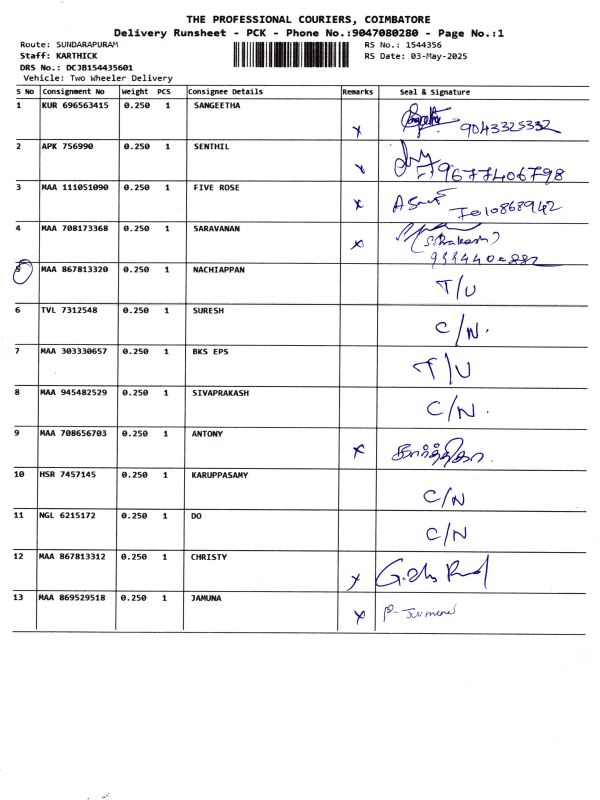 THE PROFESSIONAL COURIERS, COIMBATORE
Delivery Runsheet - PCK - Phone No.:9047080280 - Page No.:1
Route: SUNDARAPURAM RS No.: 1544356
Staff: KARTHICK RS Date: 03-May-2025
DRS No.: DCJB154435601
Vehicle: Two Wheeler Delivery
S No Consignment No Weight PCS Consignee Details Remarks Seal & Signature
1 KUR 696563415 0.250 1 SANGEETHA x 9043325332
2 APK 756990 0.250 1 SENTHIL x 9677406798
3 MAA 111051090 0.250 1 FIVE ROSE x 7010868942
4 MAA 708173368 0.250 1 SARAVANAN x
5 MAA 867813320 0.250 1 NACHIAPPAN T/U
6 TVL 7312548 0.250 1 SURESH C/N.
7 MAA 303330657 0.250 1 BKS EPS T/U
8 MAA 945482529 0.250 1 SIVAPRAKASH C/N.
9 MAA 708656703 0.250 1 ANTONY x
10 HSR 7457145 0.250 1 KARUPPASAMY C/N
11 NGL 6215172 0.250 1 DO C/N
12 MAA 867813312 0.250 1 CHRISTY x
13 MAA 869529518 0.250 1 JAMUNA x